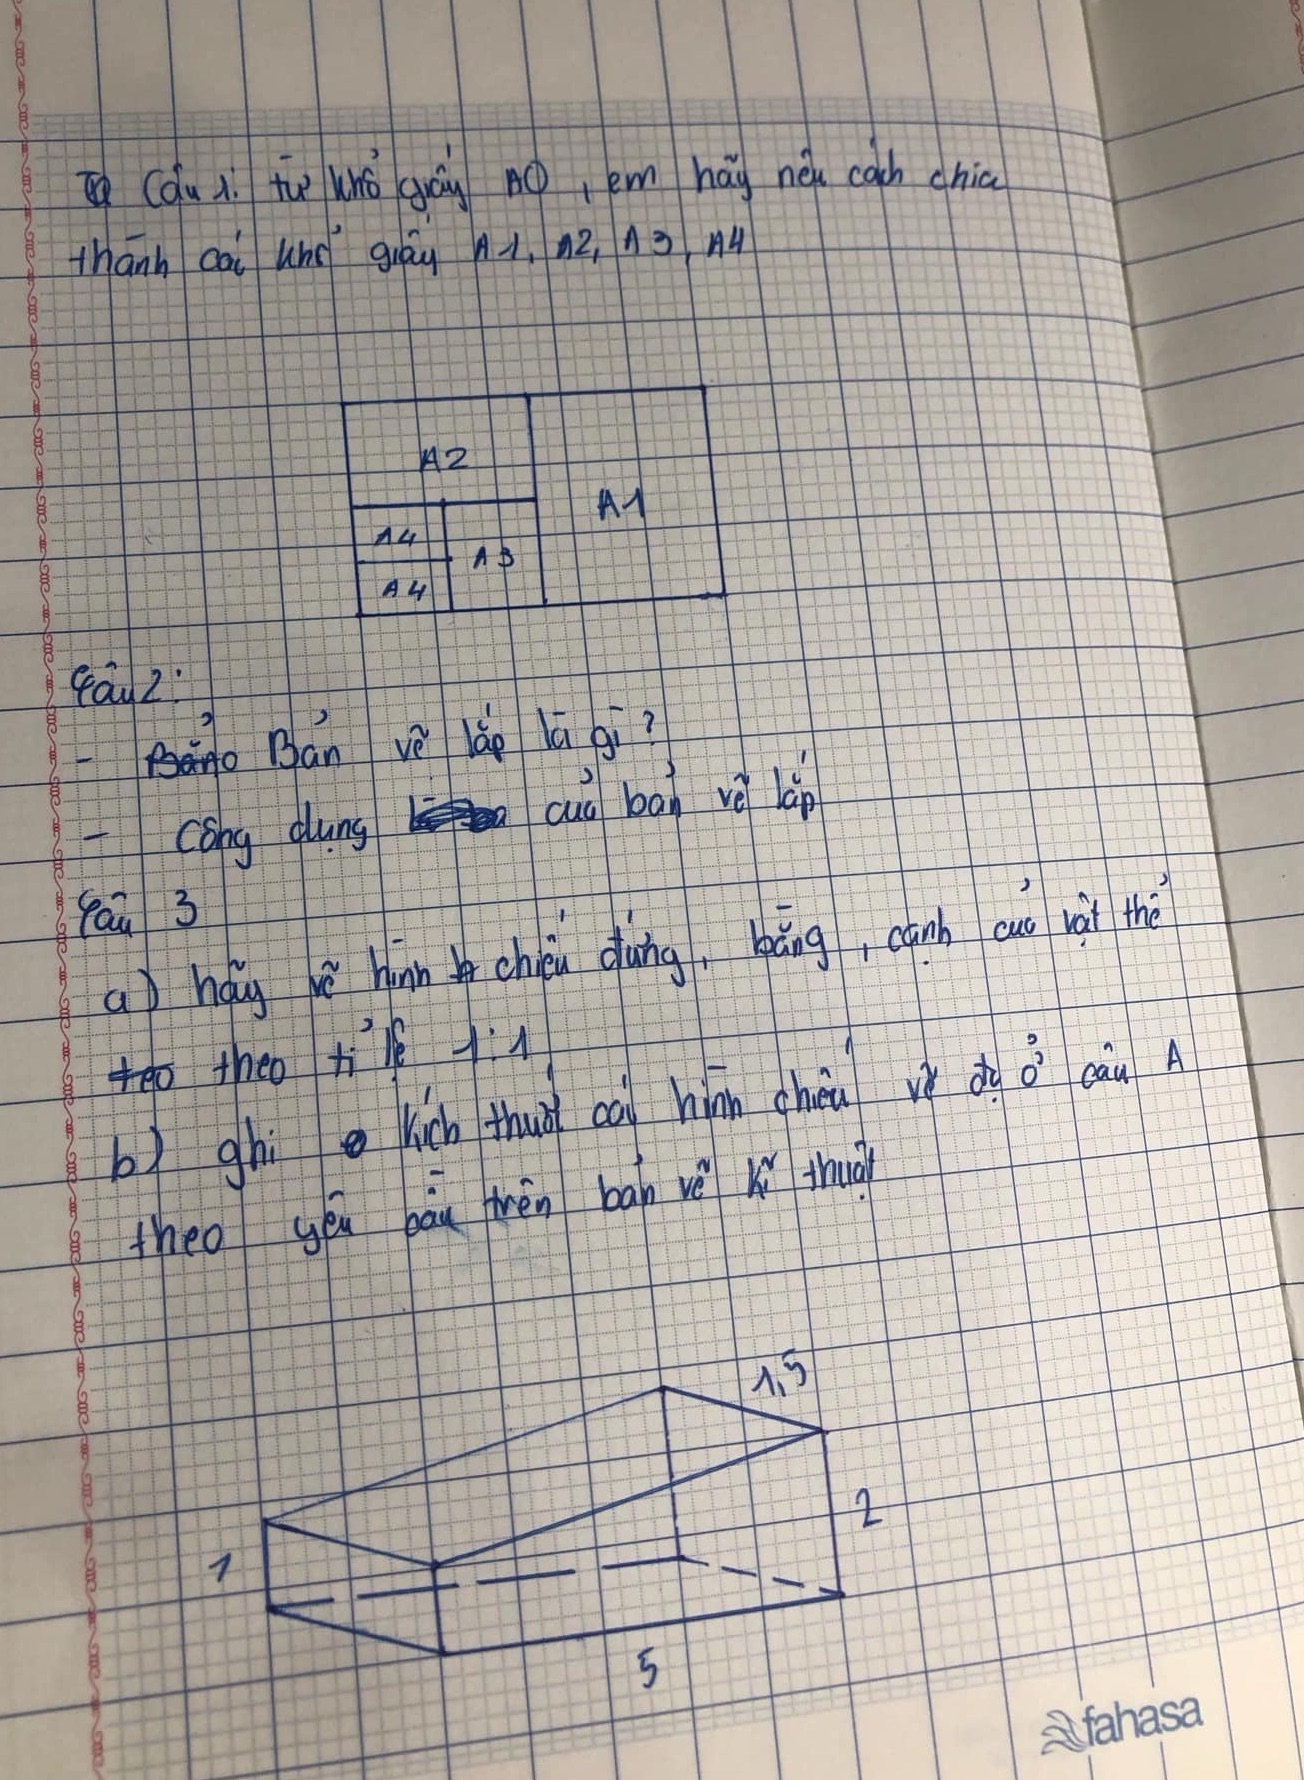 Câu 1: từ khổ giấy A0, em hãy nêu cách chia
thành các khổ giấy A1, A2, A3, A4
A2
A1
A4
A3
A4
Câu 2:
- Bản vẽ lắp là gì?
- Công dụng của bản vẽ lắp
Câu 3
a) hãy vẽ hình chiếu đứng, bằng, cạnh của vật thể
theo tỉ lệ 1:1
b) ghi kích thước các hình chiếu vẽ đc ở câu A
theo yêu cầu trên bản vẽ kĩ thuật
1,5
2
1
5
fahasa